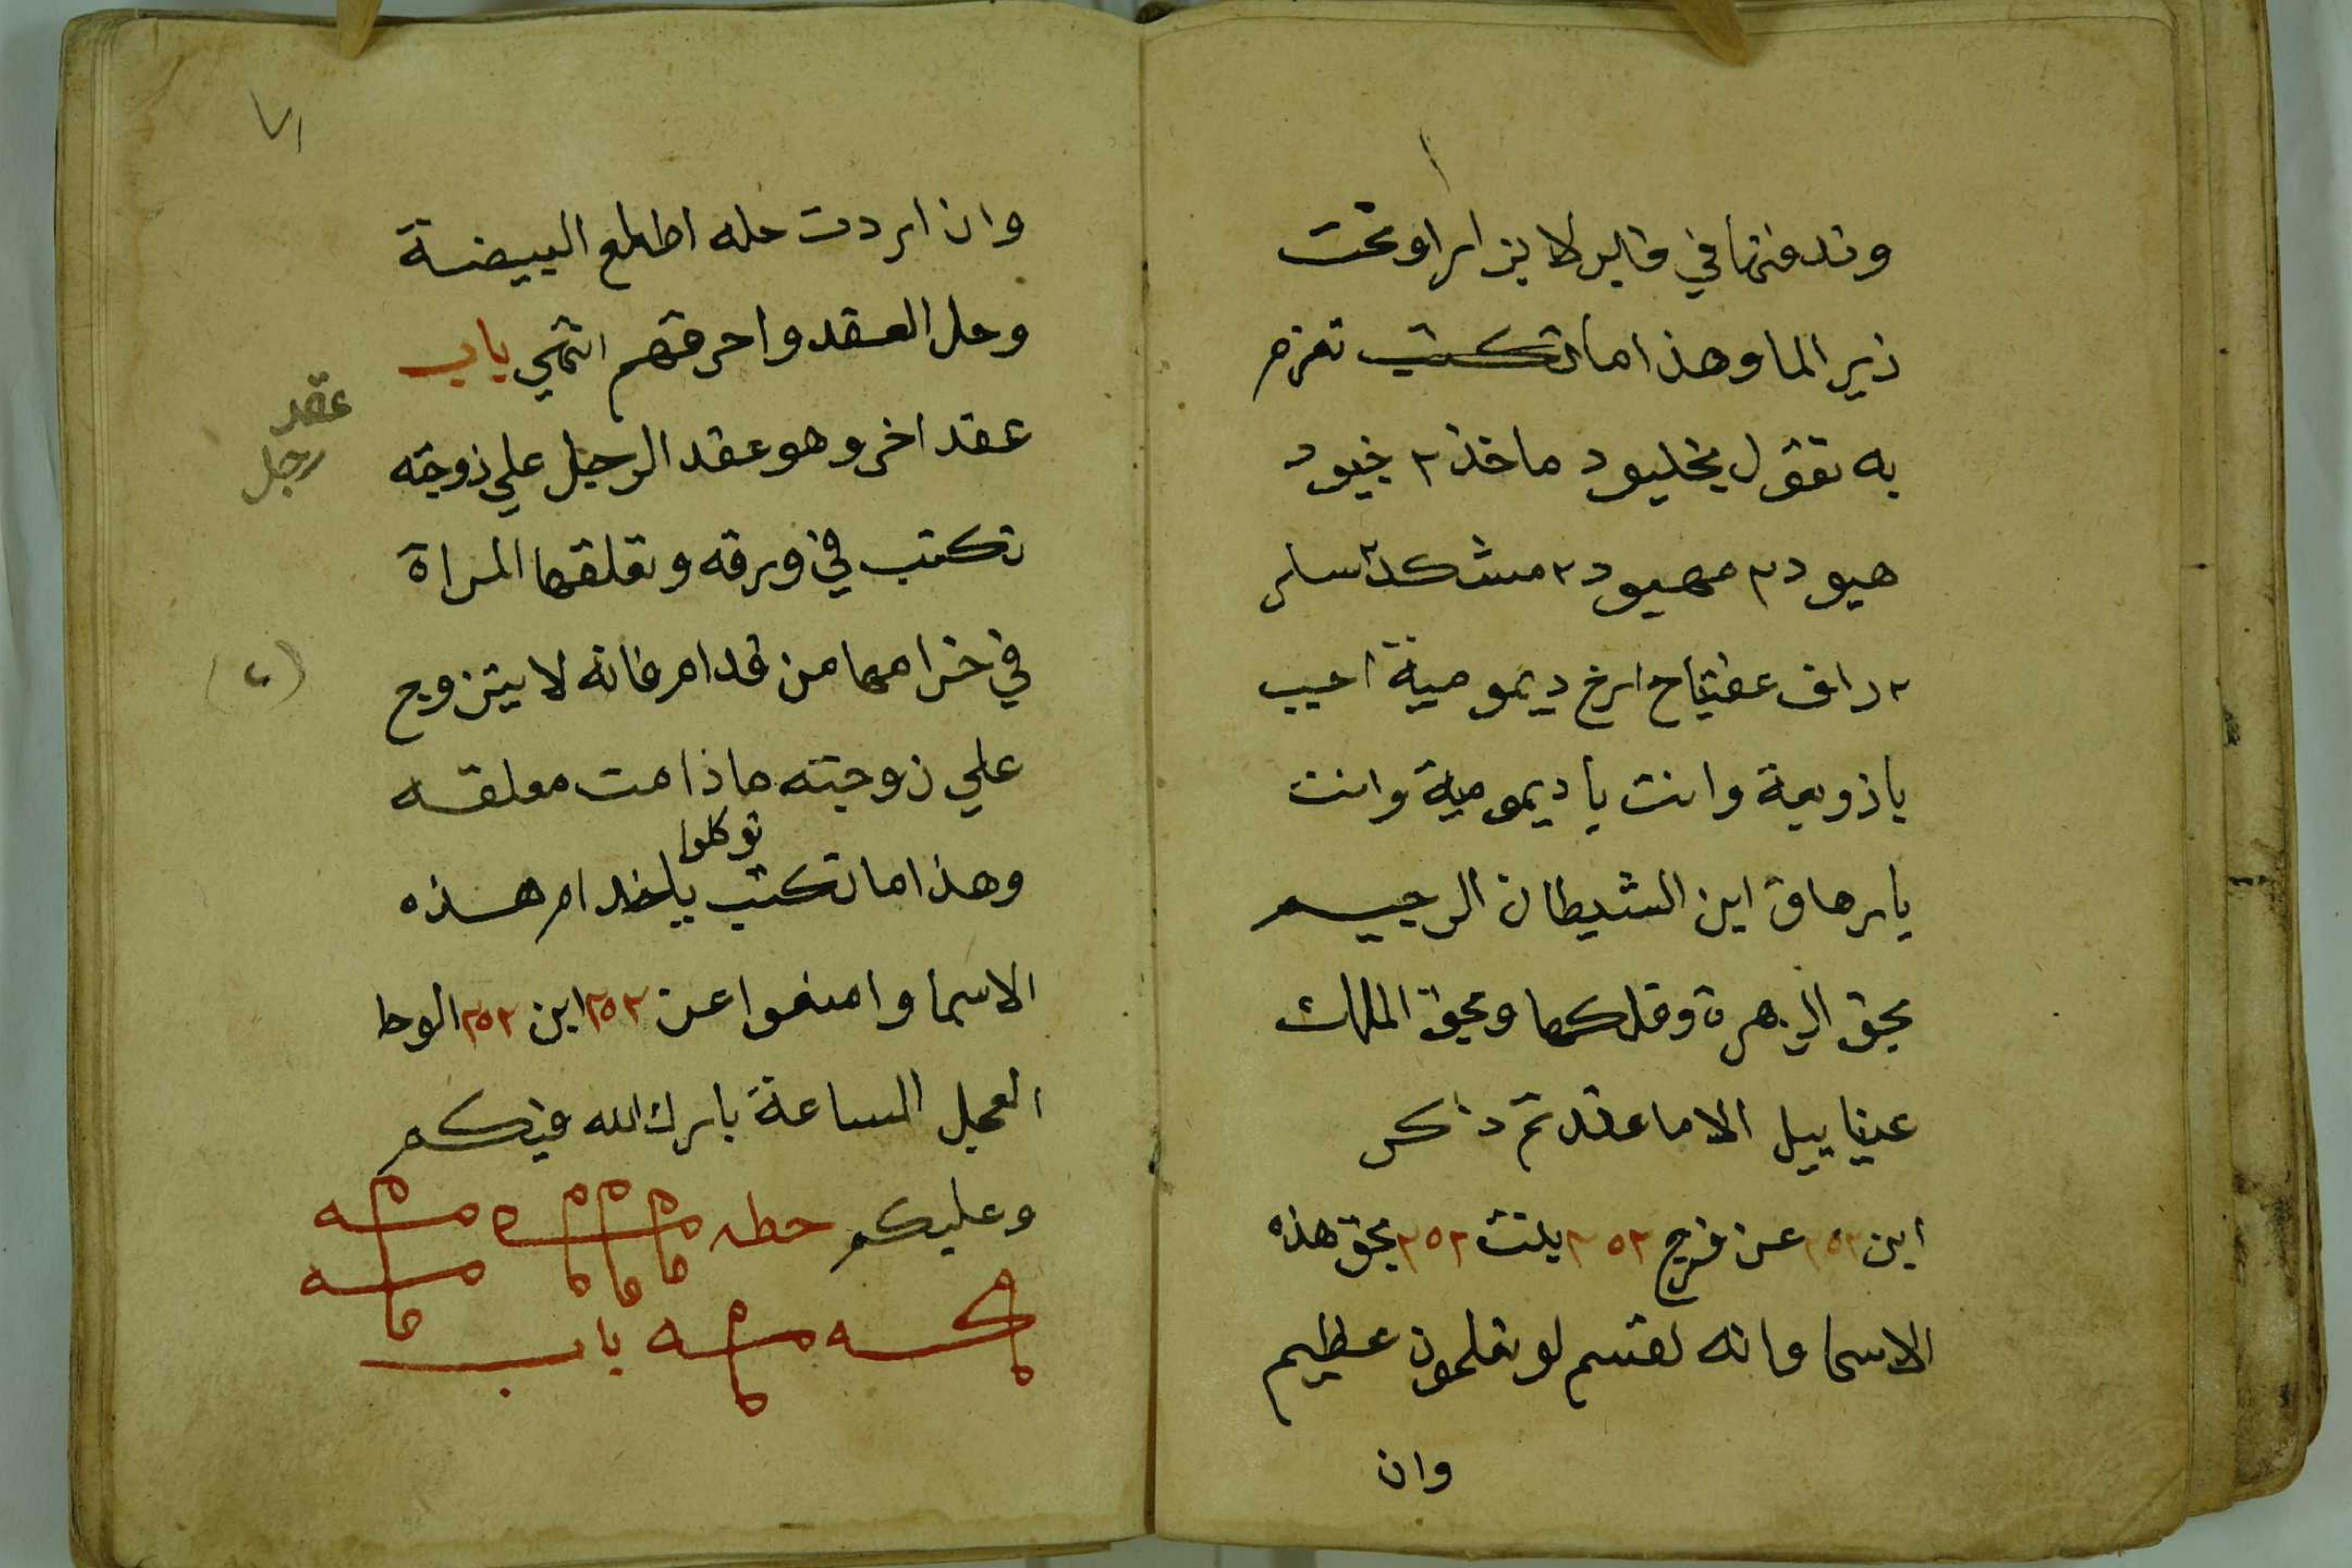 وتدفنها في قابر لا يزار او تحت
زير الما وهذا ما تكتب تعزم
به تقول يخليود ماخذ ٢ خيود
هيود ٢ مهيود ٢ مشكد ٢ سلر
٢ داف عفتياح ارخ ديمومية اجب
يا زوبعة وانت يا ديمومية وانت
يا برهاق ابن الشيطان الرجيم
بحق الزهرة وفلكها وبحق الملك
عنياييل الا ما عقدتم ذكر
ابن ٢٥٢ عن فرج ٢٥٢ بنت ٢٥٢ بحق هذه
الاسما وانه لقسم لو تعلمون عظيم
وان
وان اردت حله اطلع البيضة
وحل العقد واحرقهم انتهي باب
عقد اخر وهو عقد الرجل علي زوجته
تكتب في ورقه وتعلقها المراة
في حزامها من قدام فانه لا يتزوج
علي زوجته ماذامت معلقه
توكلوا
وهذا ما تكتب ياخدام هذه
الاسما وامنعوا عن ٢٥٢ ابن ٢٥٢ الوحا
العجل الساعة بارك الله فيكم
وعليكم
باب
عقد
رجل